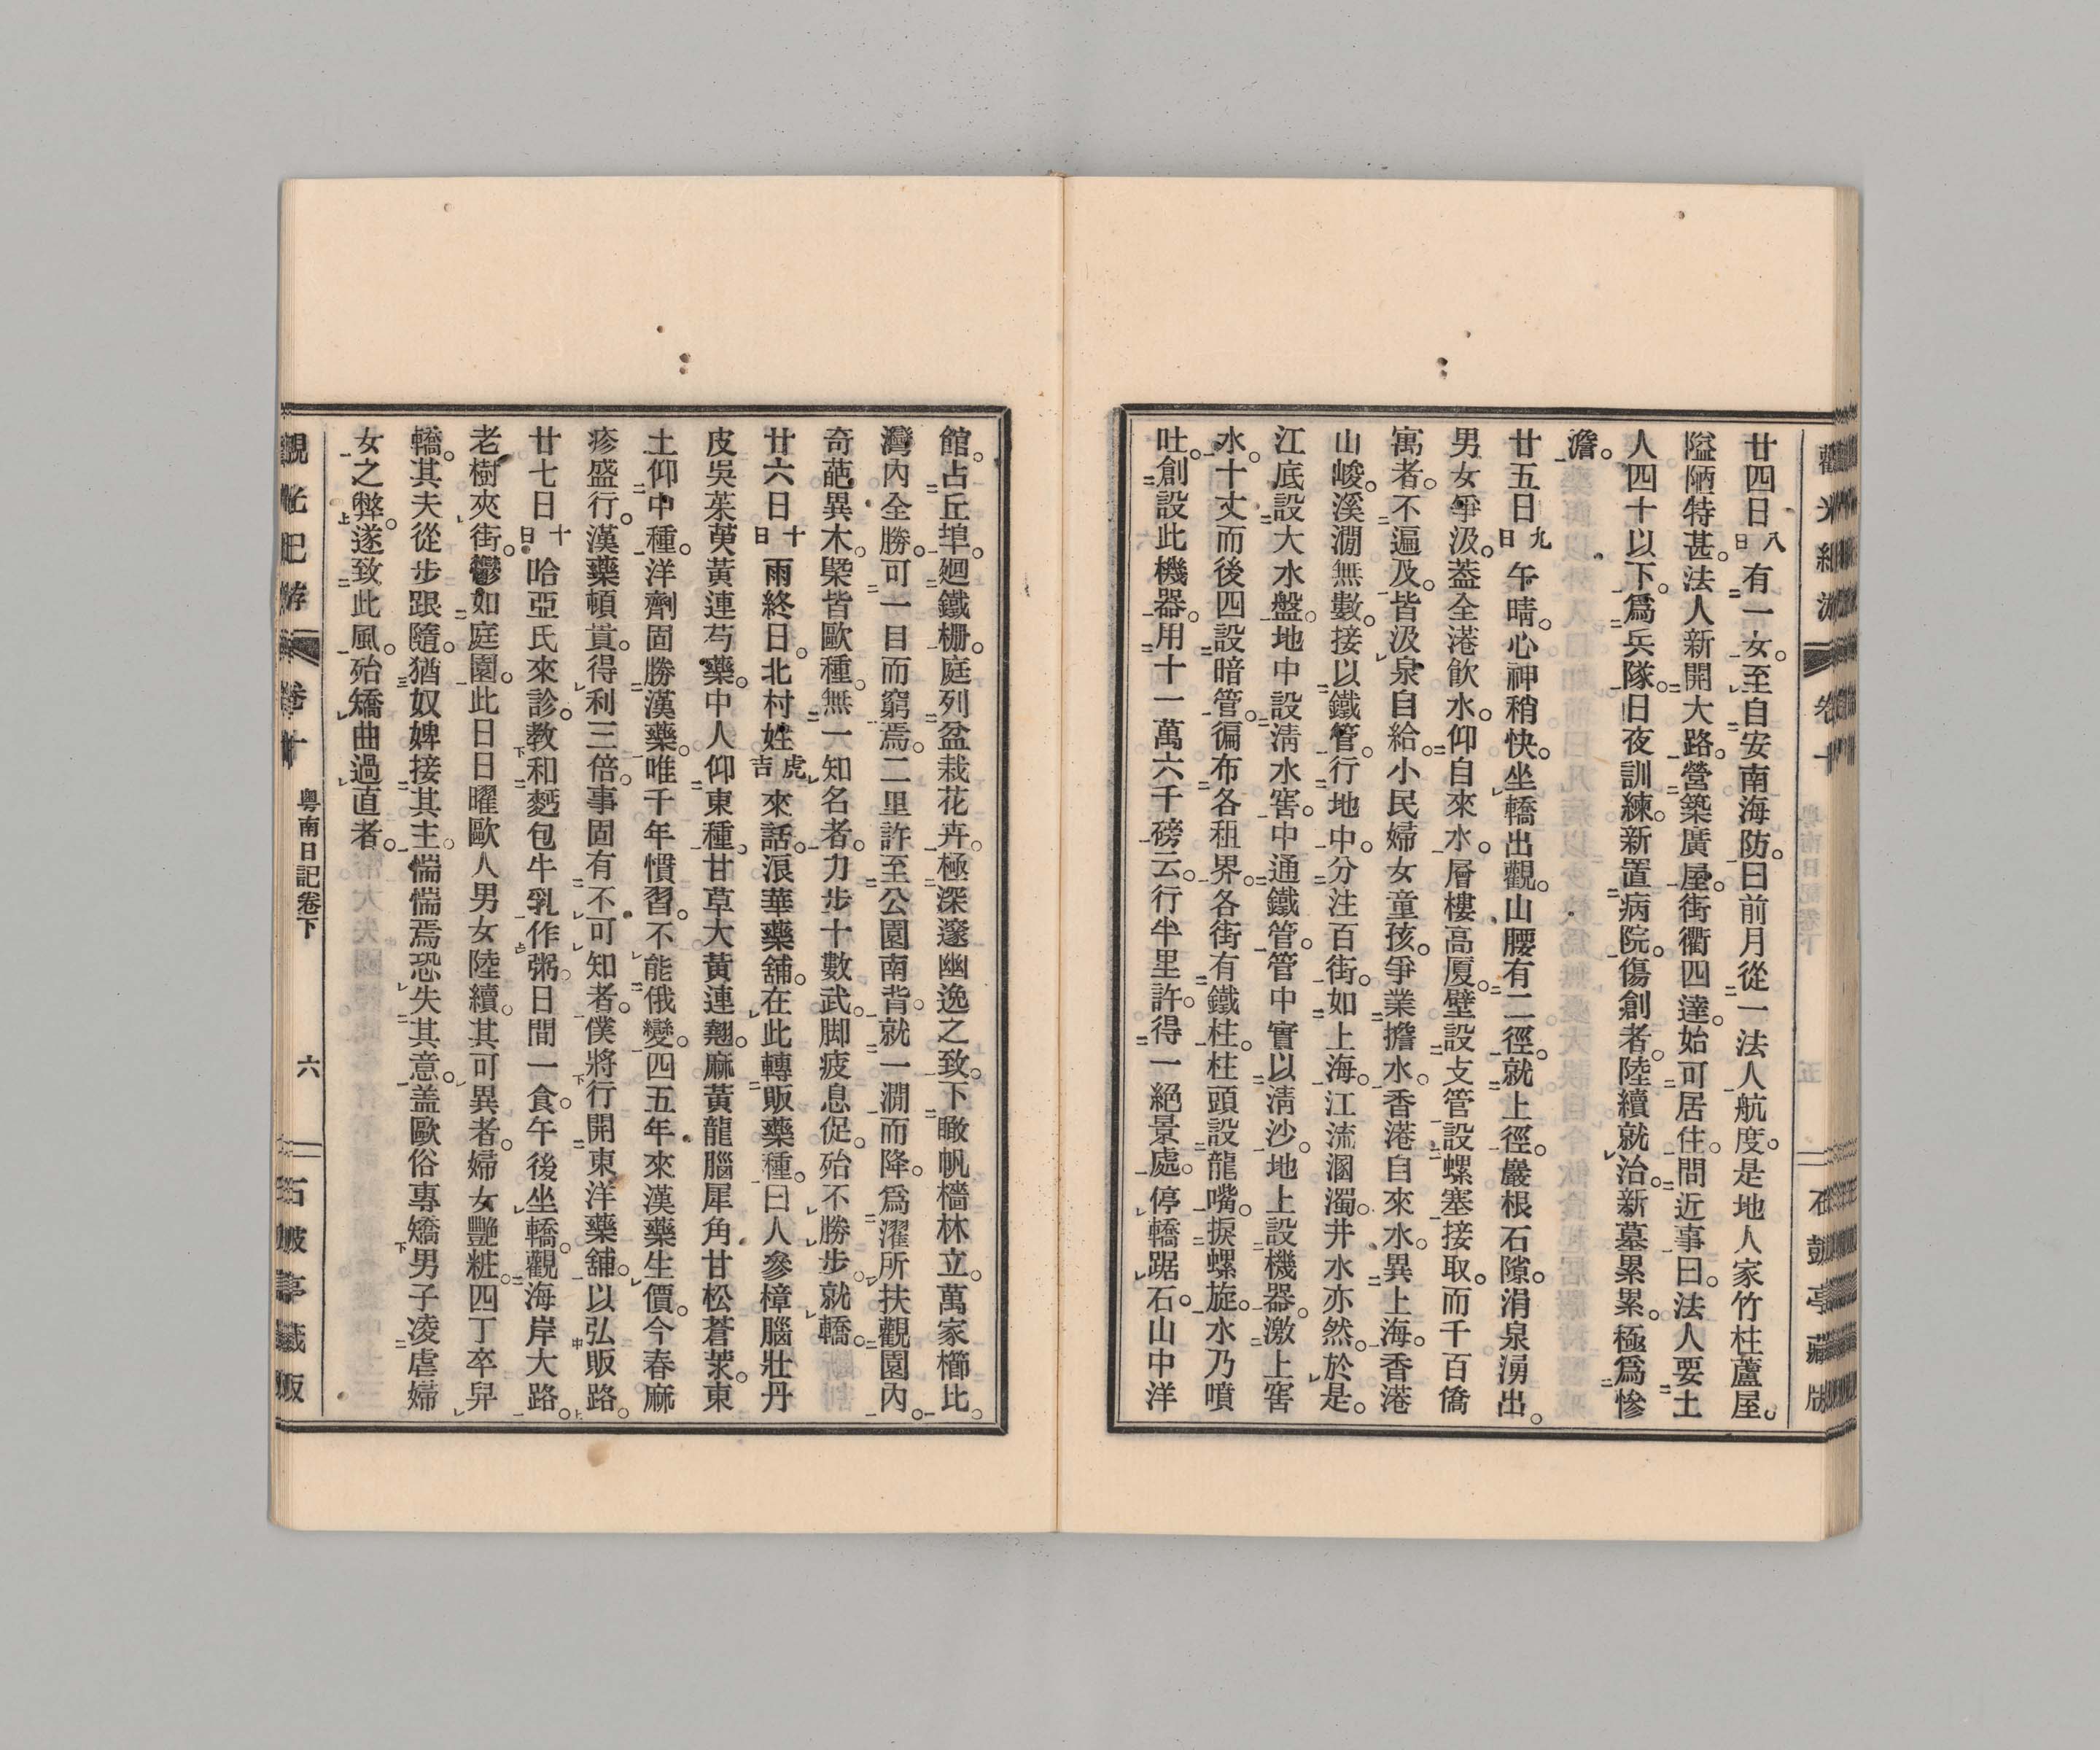 廿四日八日有一女。至自安南海防。曰前月從一法人航度。是地人家竹柱蘆屋。
隘陋特甚。法人新開大路。營築廣屋。街衢四達。始可居住。問近事曰。法人要土
人四十以下。爲兵隊。日夜訓練。新置病院。傷創者。陸續就治。新墓累累。極爲慘
澹。
廿五日九日午晴。心神稍快。坐轎出觀。山腰有二徑。就上徑。巖根石隙。涓泉湧出。
男女爭汲。葢全港飮水。仰自來水。層樓高厦。壁設支管。設螺塞接取。而千百僑
寓者。不遍及。皆汲泉自給。小民婦女童孩。爭業擔水。香港自來水。異上海。香港
山峻。溪澗無數。接以鐵管。行地中。分注百街。如上海。江流溷濁。井水亦然。於是。
江底設大水盤。地中設淸水窖。中通鐵管。管中實以淸沙。地上設機器。激上窖
水。十丈而後四設暗管。徧布各租界。各街有鐵柱。柱頭設龍嘴。捩螺旋。水乃噴
吐。創設此機器。用十一萬六千磅云。行半里許。得一絕景處。停轎踞石。山中洋
館。占丘埠。廻鐵柵。庭列盆栽花卉。極深邃幽逸之致。下瞰帆檣林立。萬家櫛比。
灣內全勝。可一目而窮焉。二里許至公園南背。就一澗而降。爲濯所扶觀園內。
奇葩異木。槩皆歐種。無一知名者。力步十數武。脚疲息促。殆不勝步。就轎。
廿六日十日雨終日。北村姓虎吉來話。浪華藥舖。在此轉販藥種。曰人參樟腦壯丹
皮吳茱萸黃連芍藥。中人仰東種。甘草大黃連翹。麻黃龍腦犀角甘松蒼朮。東
土仰中種。洋劑固勝漢藥。唯千年慣習。不能俄變。四五年來漢藥生價。今春麻
疹盛行。漢藥頓貴。得利三倍。事固有不可知者。僕將行開東洋藥舖。以弘販路。
廿七日十一日哈亞氏來診。教和麪包牛乳作粥。日間一食。午後坐轎。觀海岸大路。
老樹夾街。鬱如庭園。此日日曜歐人男女陸續。其可異者。婦女艷粧。四丁卒舁
轎。其夫從步跟隨。猶奴婢接其主。惴惴焉恐失其意。盖歐俗專矯男子凌虐婦
女之弊。遂致此風。殆矯曲過直者。
觀光紀游 卷十
粤南日記卷下
六
石皷亭藏版